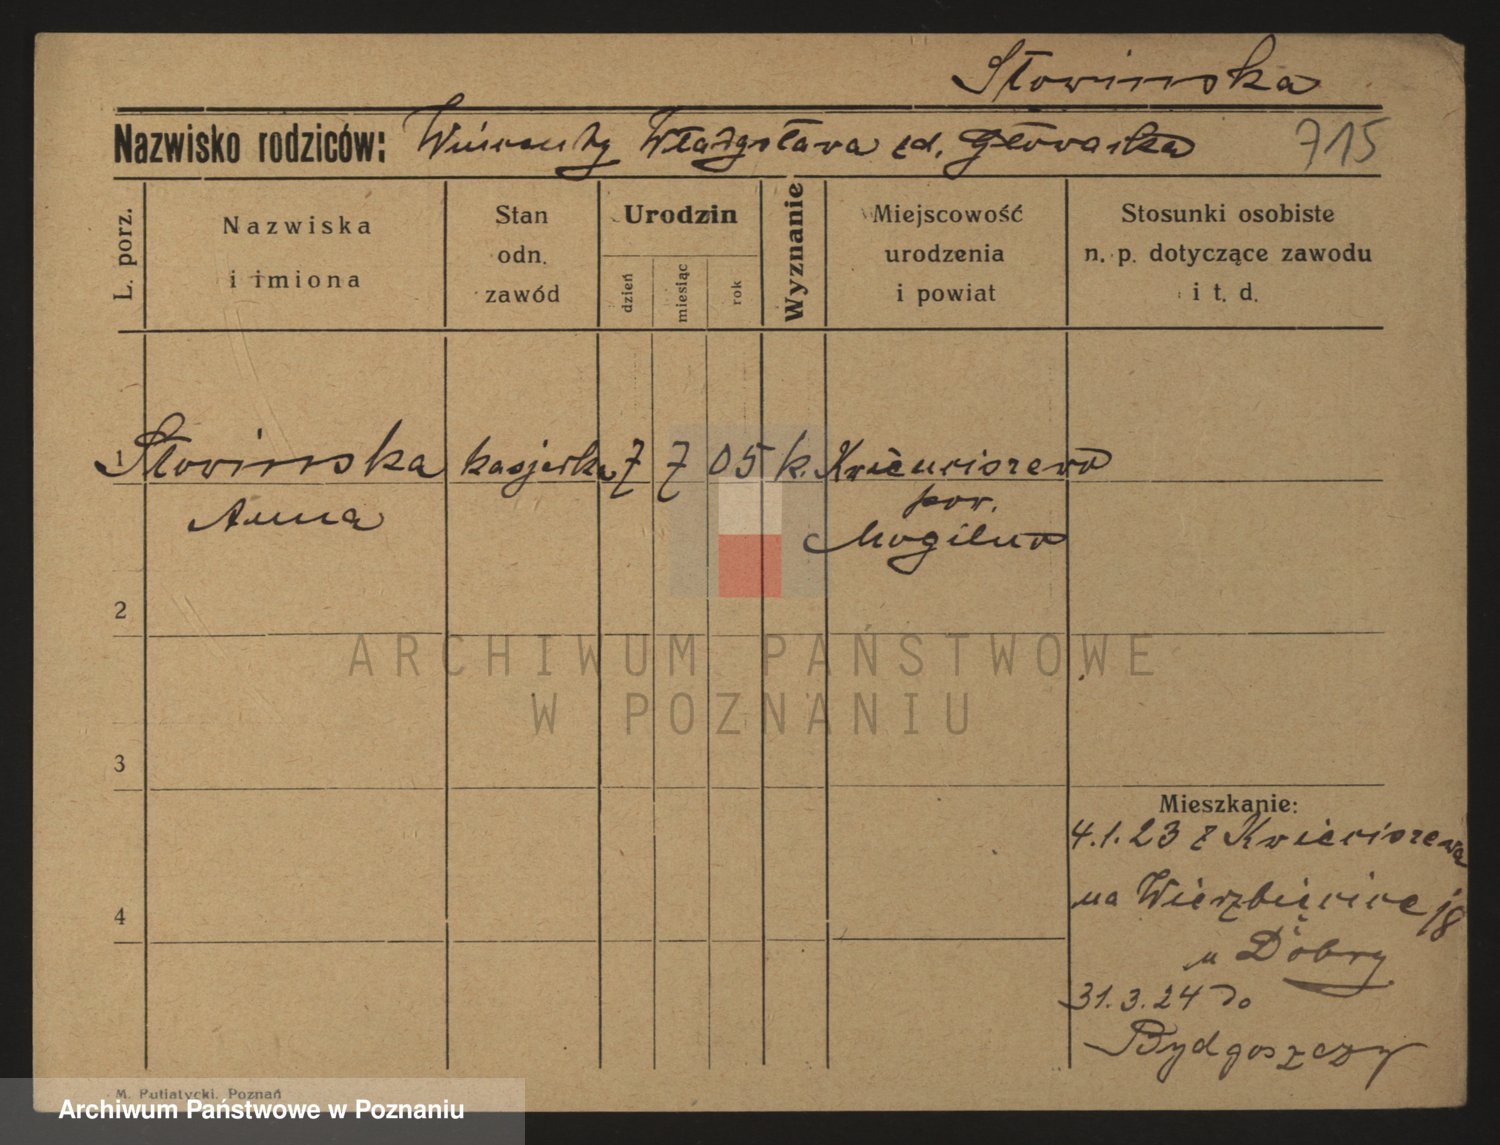 Słowinska
Nazwisko rodziców: Wincenty Władysława Głowacka
715
L. porz.
Nazwiska
i imiona
Stan
odn.
zawód
Urodzin
dzień
miesiąc
rok
Wyznanie
Miejscowość
urodzenia
i powiat
Stosunki osobiste
n. p. dotyczące zawodu
i t. d.
1 Słowinska kasjerka 7 7 05 k. Kwieciszewo
Anna pow.
Mogilno
2
ARCHIWUM PAŃSTWOWE
W POZNANIU
3
Mieszkanie:
4.1.23 z Kwieciszewa
na Wierzbięcice 18
4
u Dobry
31.3.24 do
Bydgoszczy
M. Putiatycki, Poznań
Archiwum Państwowe w Poznaniu